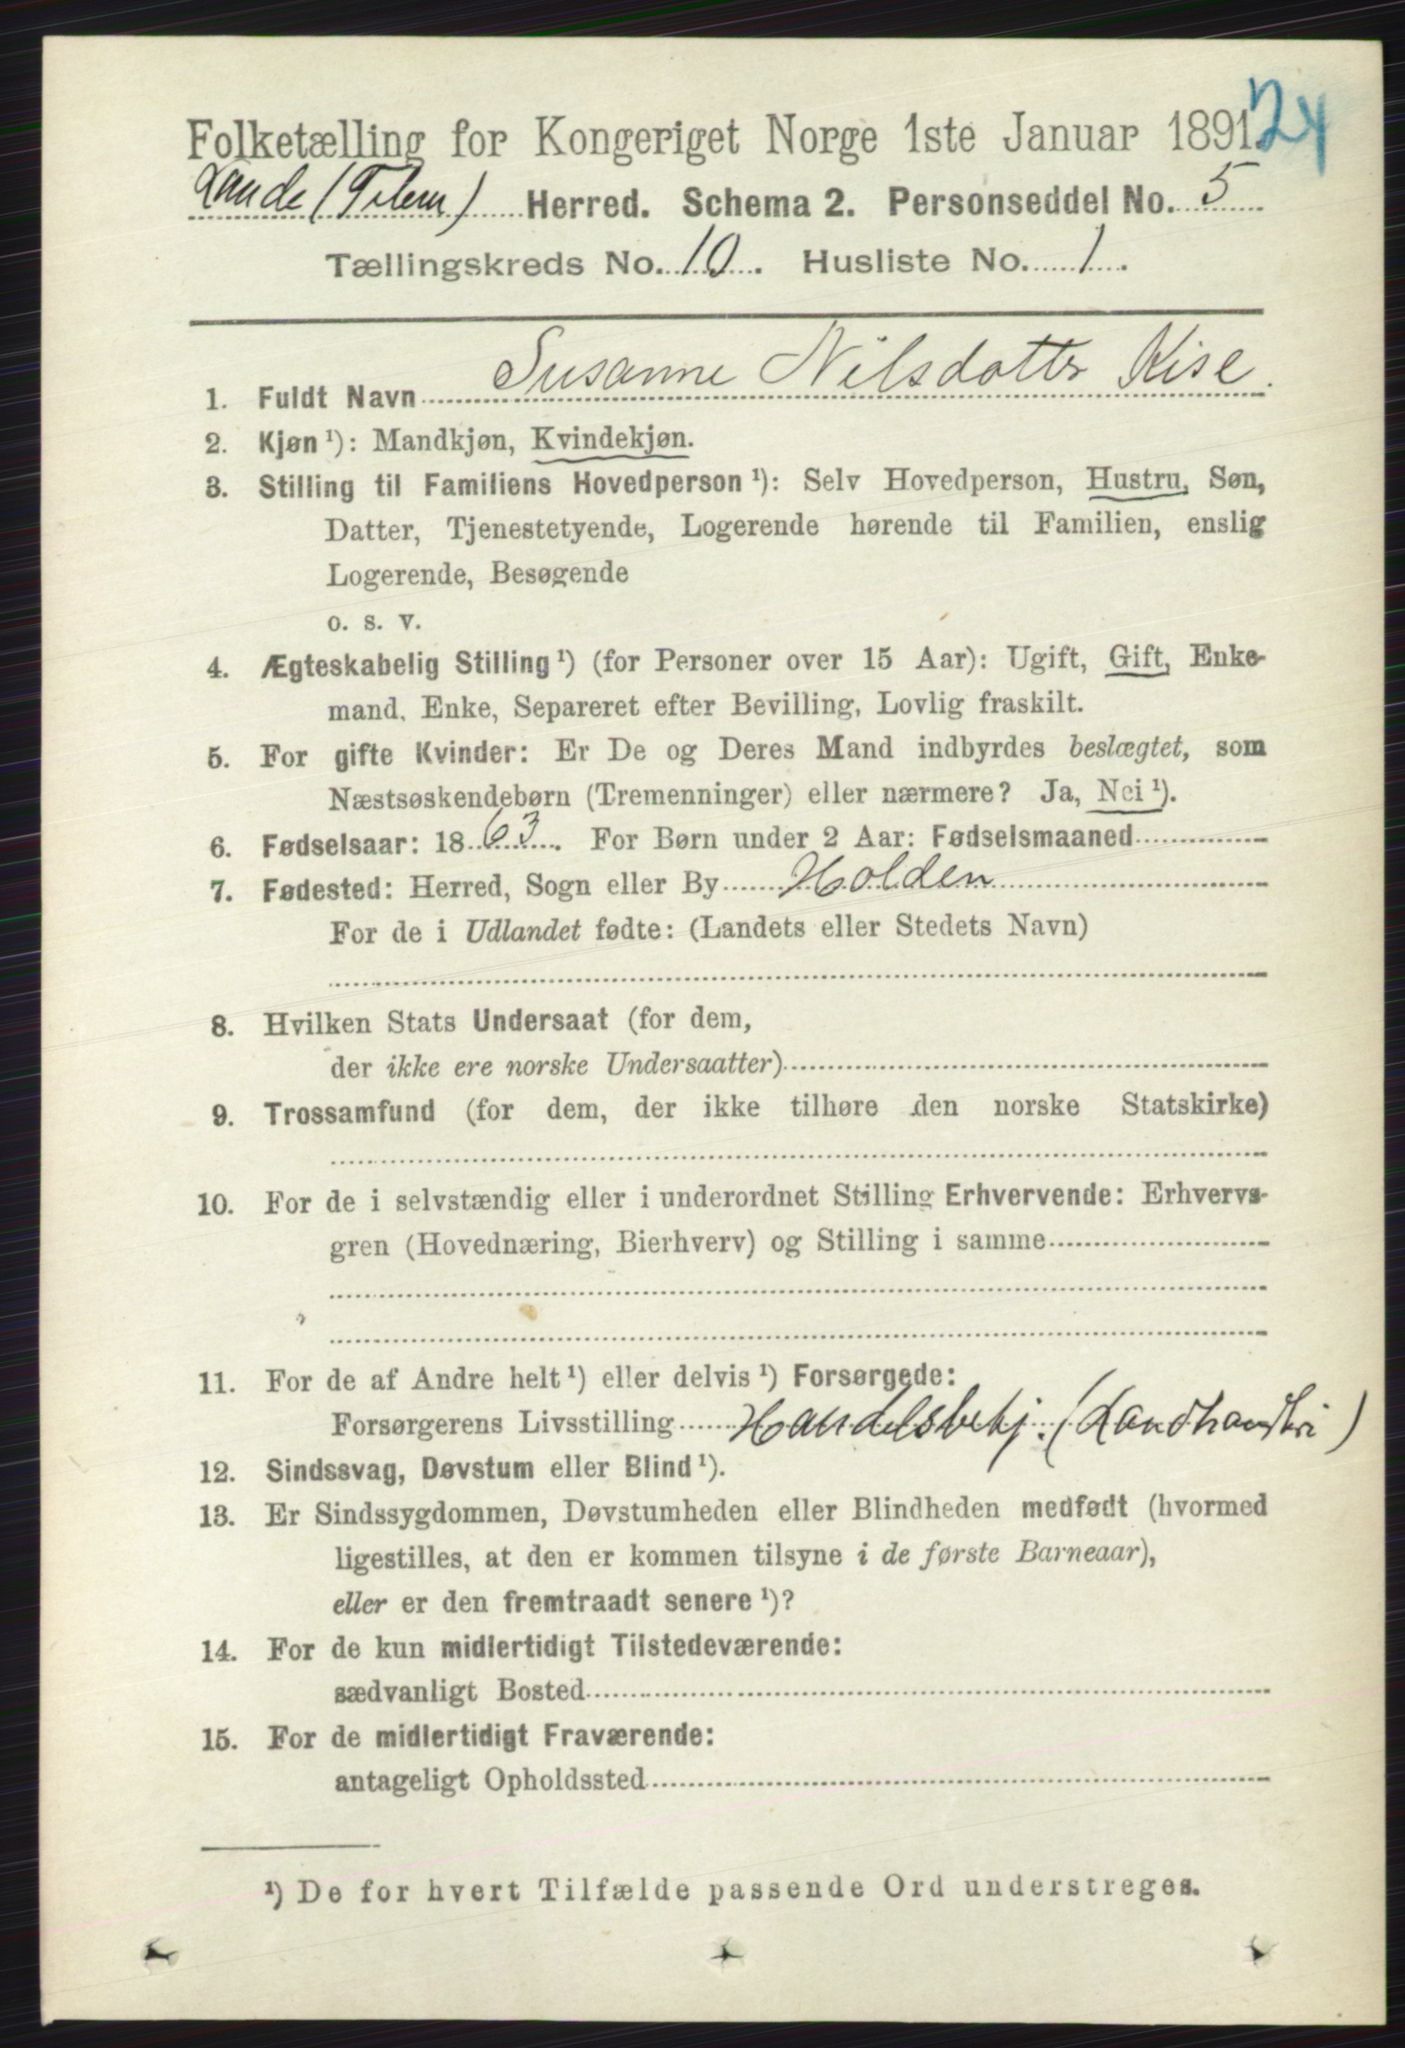 Folketælling for Kongeriget Norge 1ste Januar 1891.
24
Laude (Telem) Herred. Schema 2. Personseddel No. 5
Tællingskreds No. 10. Husliste No. 1.
1. Fuldt Navn Susanne Nilsdotter Kise.
2. Kjøn ¹): Mandkjøn, Kvindekjøn.
3. Stilling til Familiens Hovedperson ¹): Selv Hovedperson, Hustru, Søn,
Datter, Tjenestetyende, Logerende hørende til Familien, enslig
Logerende, Besøgende
o. s. v.
4. Ægteskabelig Stilling ¹) (for Personer over 15 Aar): Ugift, Gift, Enke-
mand, Enke, Separeret efter Bevilling, Lovlig fraskilt.
5. For gifte Kvinder: Er De og Deres Mand indbyrdes beslægtet, som
Næstsøskendebørn (Tremenninger) eller nærmere? Ja, Nei ¹).
6. Fødselsaar: 18 63. For Børn under 2 Aar: Fødselsmaaned
7. Fødested: Herred, Sogn eller By Holden
For de i Udlandet fødte: (Landets eller Stedets Navn)
8. Hvilken Stats Undersaat (for dem,
der ikke ere norske Undersaatter)
9. Trossamfund (for dem, der ikke tilhøre den norske Statskirke)
10. For de i selvstændig eller i underordnet Stilling Erhvervende: Erhvervs-
gren (Hovednæring, Bierhverv) og Stilling i samme
11. For de af Andre helt ¹) eller delvis ¹) Forsørgede:
Forsørgerens Livsstilling Handelsbetj. (Landhandleri)
12. Sindssvag, Døvstum eller Blind ¹).
13. Er Sindssygdommen, Døvstumheden eller Blindheden medfødt (hvormed
ligestilles, at den er kommen tilsyne i de første Barneaar),
eller er den fremtraadt senere ¹)?
14. For de kun midlertidigt Tilstedeværende:
sædvanligt Bosted
15. For de midlertidigt Fraværende:
antageligt Opholdssted
¹) De for hvert Tilfælde passende Ord understreges.